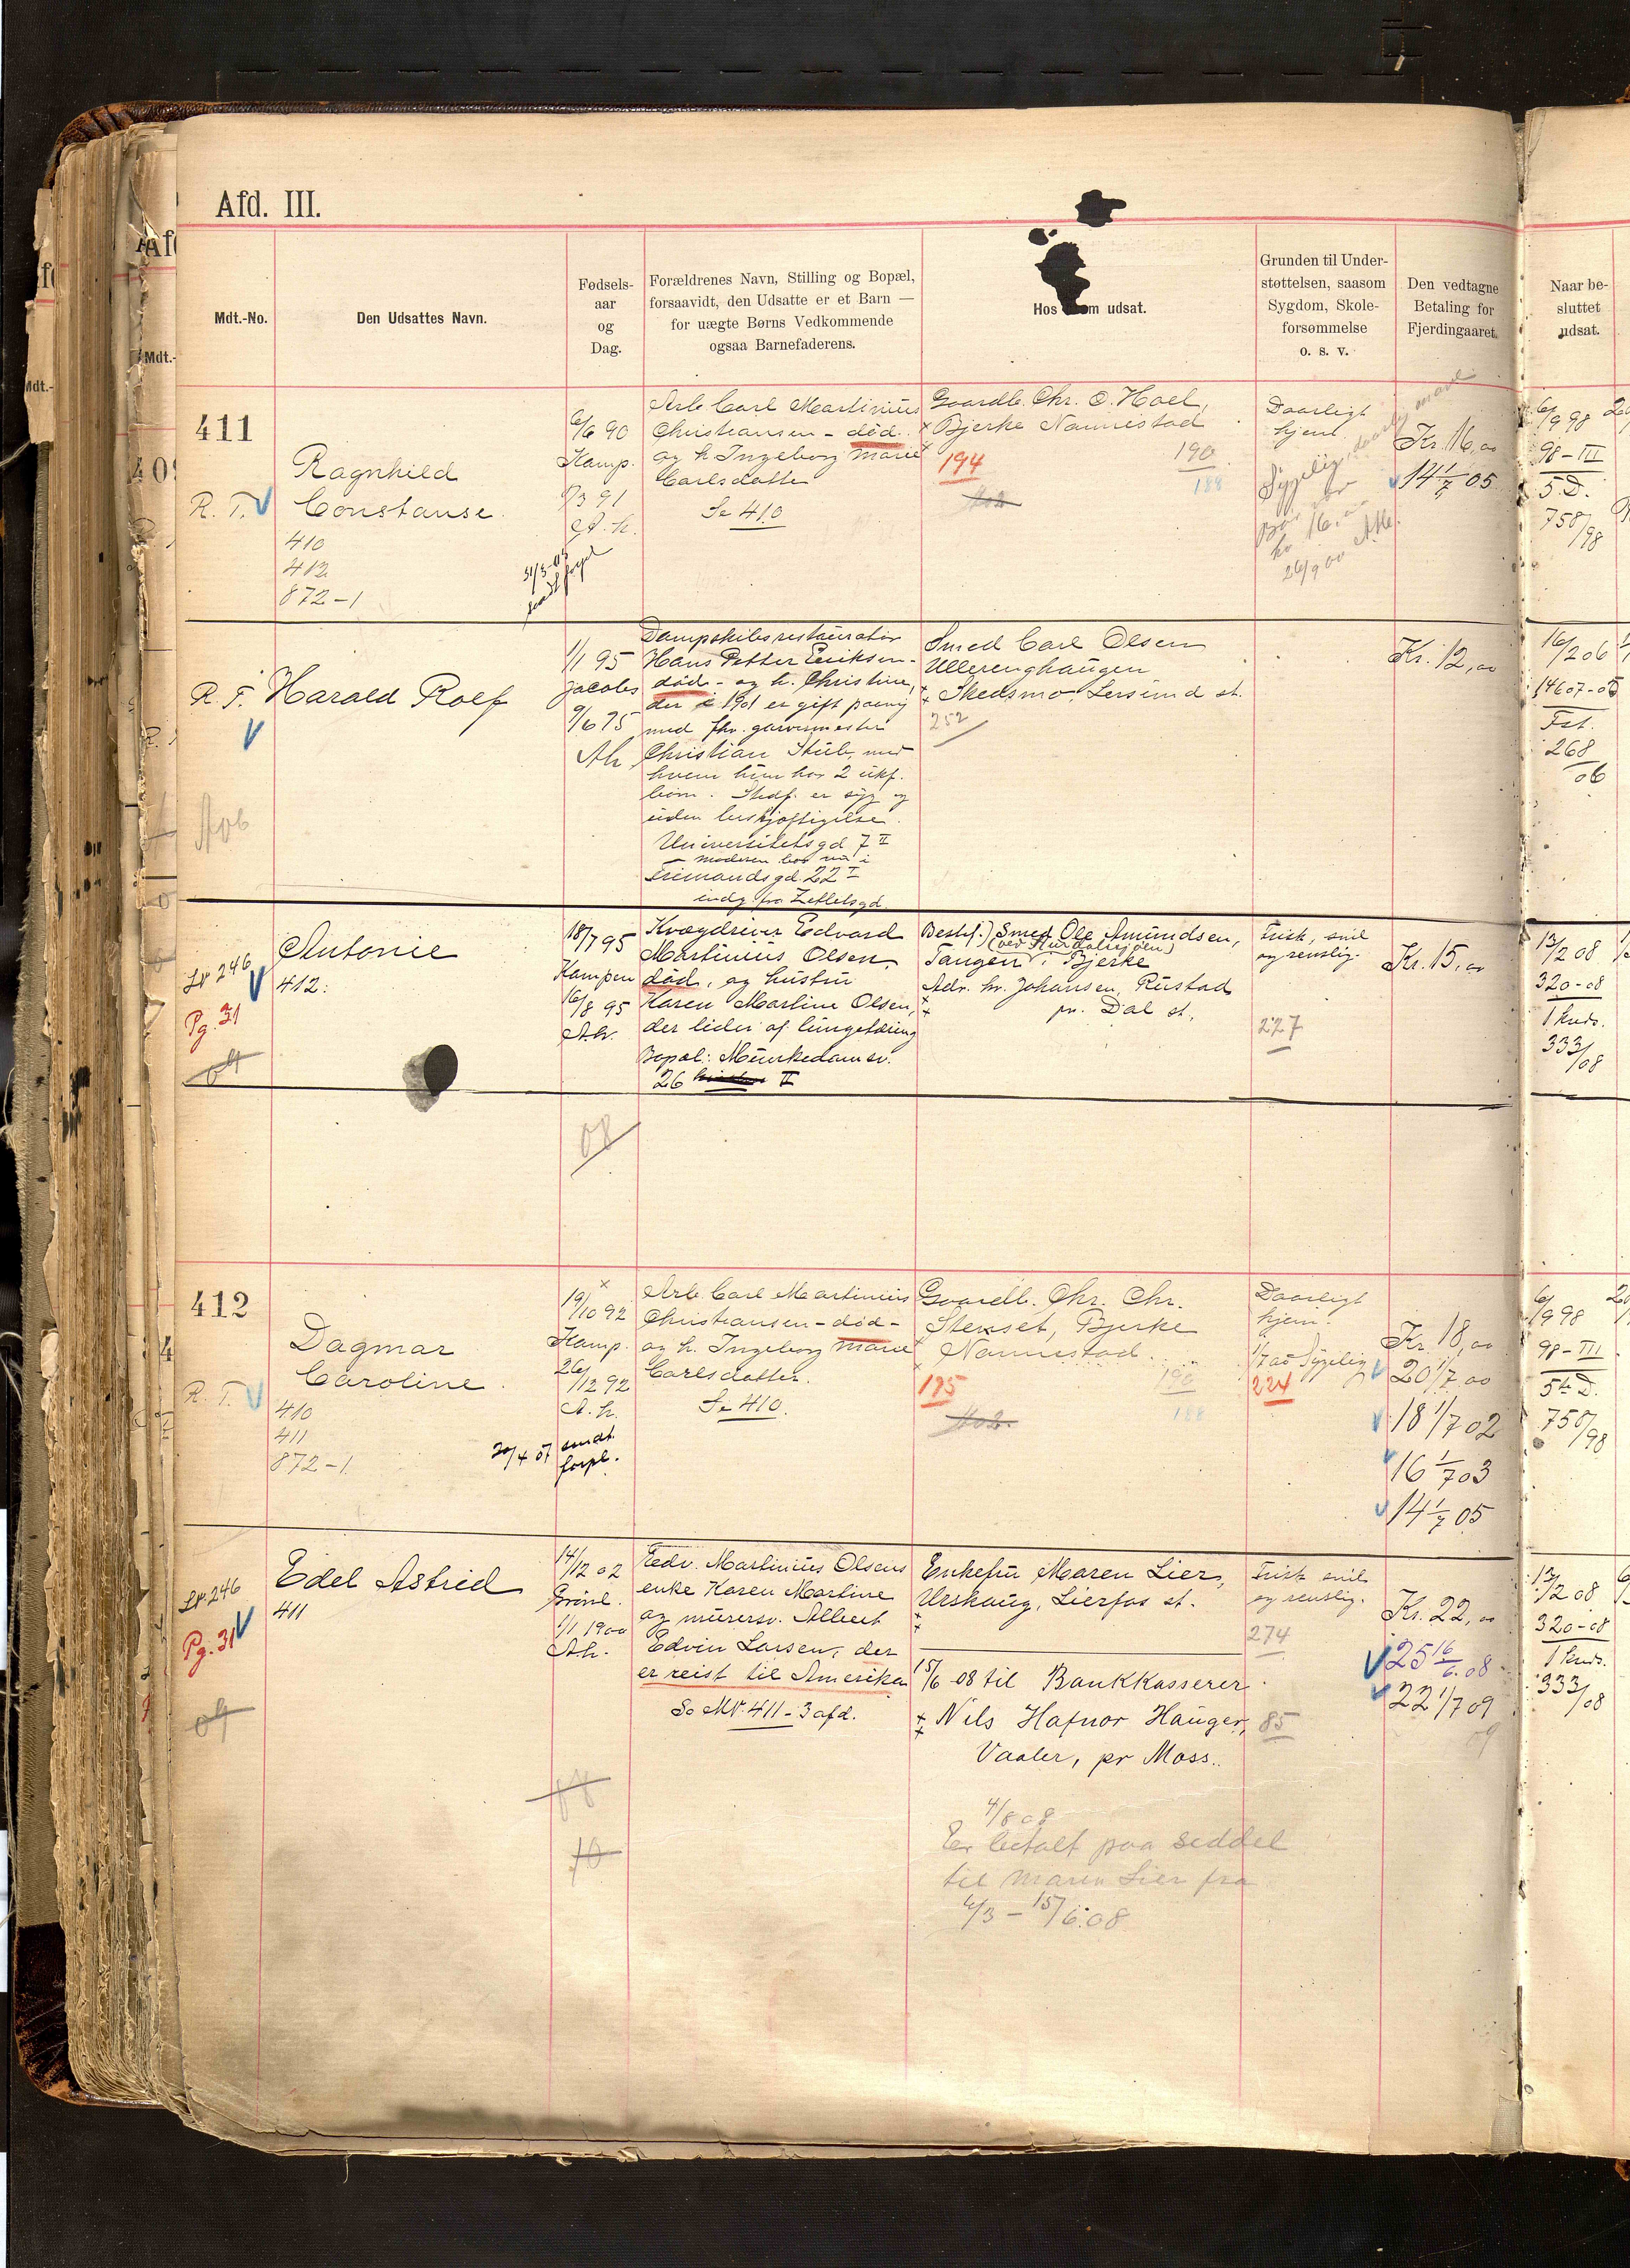 Afd. III.
Mdt.-No.
Den Udsattes Navn.
Fødsels-
aar
og
Dag.
Forældrenes Navn, Stilling og Bopæl,
forsaavidt, den Udsatte er et Barn —
for uægte Børns Vedkommende
ogsaa Barnefaderens.
Hos
m udsat.
Grunden til Under-
støttelsen, saasom
Sygdom, Skole-
forsømmelse
o. s. v.
Den vedtagne
Betaling for
Fjerdingaaret.
Naar be-
sluttet
udsat.
411
R. T.
Ragnhild
Constanse
410
412
872-1
6/6 90
Kamp.
A. h.
Arb. Carl Martinius
Christiansen - død.
og h. Ingeborg Marie
Carlsdatter
Se 410
Gaardb. Chr. O. Hoel,
Bjerke Nannestad
194
190
188
Daarligt
hjem
Sygelig,
26/9 00
Kr. 16,00
14 1/7 05
6/9 98
98-III
5 D.
758/98
R. T.
Harald Rolf
1/1 95
Jacobs
9/6 75
Ah
Dampskibsrestauratør
Hans Petter Eriksen-
død - og h. Christine,
der i 1901 er gift paany
med fhv. garvermester
Christian Stub, med
hvem hun har 2 ukf.
børn. Stedf. er syg og
uden beskjæftigelse.
Universitetsgd 7 II
- moderen bor nu i
22 I
Smed Carl Olsen
Ullerenghaugen
Skedsmo, Lersund st.
252
Kr. 12,00
16/2 06
14607-05
Fst.
268/06
Lr 246
Pg. 31
Antonie
412.
18/7 95
Kampen
16/8 95
A.h.
Kvægdriver Edvard
Martinius Olsen,
død, og hustru
Karen Martine Olsen,
der lider af lungetæring
Bopæl: Munkedamsv.
26 II
Bestef.) Smed Ole Amundsen,
(ved Hurdalssjøen)
Tangen i Bjerke
Adr. hr. Johansen, Rustad
pr. Dal st.
Frisk, snil
og renslig.
227
Kr. 15,00
13/2 08
320-08
1 kreds.
333/08
08
412
R. T.
Dagmar
Caroline
410
411
872-1
19/10 92
Kamp.
26/12 92
A. h.
20/4 07 endt
forpl.
Arb. Carl Martinius
Christiansen - død -
og h. Ingeborg Marie
Carlsdatter.
Se 410.
Gaardb. Chr. Chr.
Stenset, Bjerke
Nannestad.
195
190
188
Daarligt
hjem.
1/7 00 Sygelig
224
Kr. 18,00
20 1/7 00
18 1/7 02
16 1/7 03
14 1/7 05
6/9 98
98-III
5te D.
758/98
Lr. 246
Pg. 31
Edel Astrid
411
14/12 02
Grønl.
1/1 1900
A.h.
Edv. Martinius Olsens
enke Karen Martine
og murersv. Albert
Edvin Larsen, der
er reist til Amerika
Se No. 411 - 3 afd.
Enkefru Maren Lier,
Urskaug, Lierfos st.
15/6 08 til Bankkasserer
Nils Hafnor Hauger,
Vaaler, pr Moss.
4/8 08
Er betalt paa seddel
til Maren Lier fra
4/3 - 15/6.08
Frisk snil
og renslig.
274
85
Kr. 22,00
25 16/6.08
22 1/7 09
09
13/2 08
320-08
1 kreds.
333/08
10